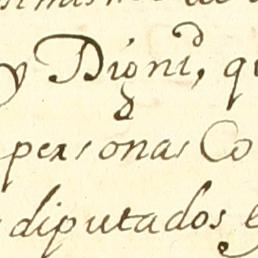 y Dioniᵈ, qu
personas Co
diputados e